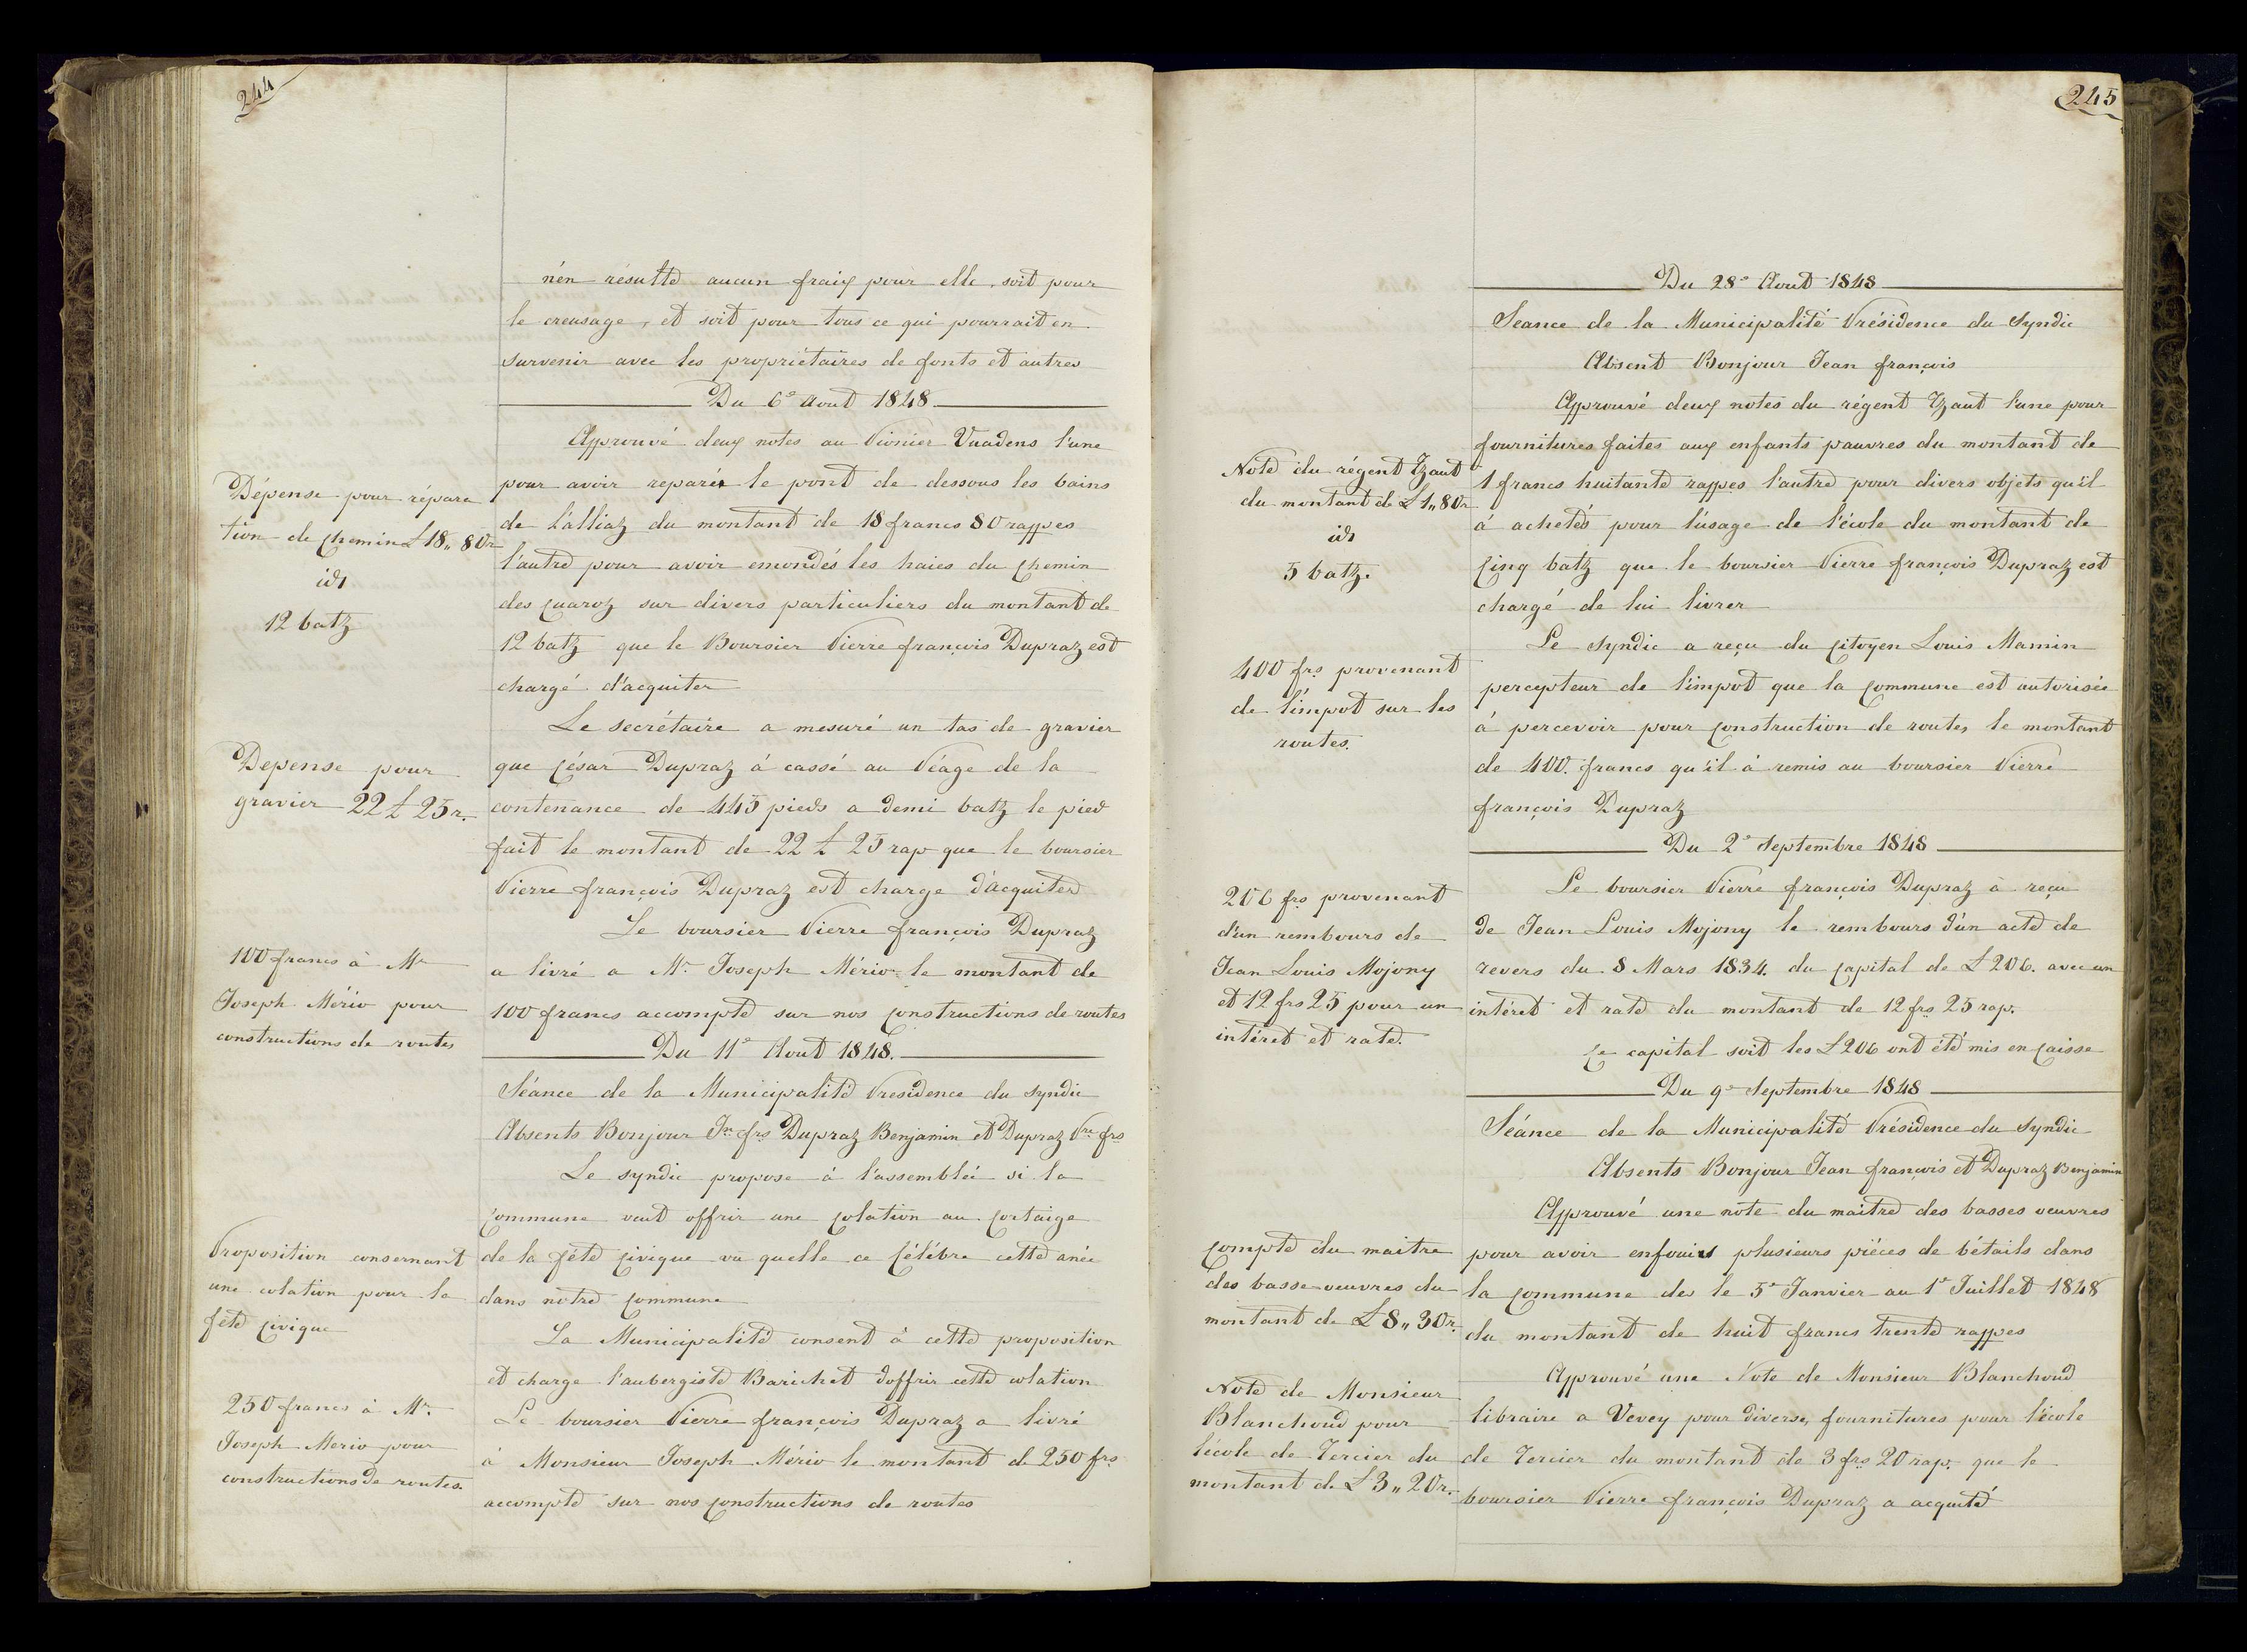 244
n'en résulte aucun fraix pour elle, soit pour
le creusage, et soit pour tous ce qui pourrait en
survenir avec les propriétaires de fonts et autres
Du 6e Aout 1848
Approuvé deux notes au Pionier Vuadens l'une
pour avoir reparér le pont de dessous les bains
de Lalliaz du montant de 18 francs 80 rappes
l'autre pour avoir emondés les haies du Chemin
des Cuaroz sur divers particuliers du montant de
12 batz que le Boursier Pierre françois Dupraz est
chargé d'acquiter
Le secrétaire a mesuré un tas de gravier
que César Dupraz à cassé au Péage de la
contenance de 445 pieds a demi batz le pied
fait le montant de 22 £ 25 rap que le boursier
Pierre françois Dupraz est charge d'acquiter
Le boursier Pierre françois Dupraz
a livré a Mr Joseph Mério le montant de
100 francs accompte sur nos Constructions de routes
Du 11e Aout 1848.
Séance de la Municipalité Presidence du Syndic
Absents Bonjour Jn frs Dupraz Benjamin et Dupraz Pre frs
Le syndic propose à l'assemblée si la
Commune veut offrir une Colation au Cortaige
de la fête Civique vu quelle ce Célébre cette anée
dans nôtre Commune
La Municipalité consent à cette proposition
et charge l'aubergiste Barichet d'offrir cette colation
Le boursier Pierre françois Dupraz a livré
à Monsieur Joseph Mério le montant de 250 frs
accompte sur nos Constructions de routes
Dépense pour répara
tion de Chemin £ 18,, 80 r
id
12 batz
Depense pour
gravier 22 £ 25 r.
100 francs à Mr
Joseph Mério pour
constructions de routes
Proposition consernant
une colation pour la
fête Civique
250 francs à Mr.
Joseph Merio pour
constructions de routes.
245
Du 28e Aout 1848
Seance de la Municipalité Présidence du Syndic
Absent Bonjour Jean françois
Approuvé deux notes du régent Tzaut l'une pour
fournitures faites aux enfants pauvres du montant de
1 francs huitante rappes l'autre pour divers objets qu'il
à achetés pour l'usage de l'école du montant de
Cinq batz que le boursier Pierre françois Dupraz est
chargé de lui livrer
Le Syndic a reçu du Citoyen Louis Mamin
percepteur de l'impot que la Commune est autorisée
à percevoir pour Construction de routes le montant
de 400. francs qu'il à remis au boursier Pierre
françois Dupraz
Du 2e Septembre 1848
Le boursier Pierre françois Dupraz à reçu
de Jean Louis Mojony le rembours d'un acte de
revers du 8 Mars 1834. du Capital de £ 206. avec un
intéret et rate du montant de 12 frs 25 rap.
Ce capital soit les £ 206 ont été mis en Caisse
Du 9e Septembre 1848
Séance de la Municipalité Présidence du Syndic
Absents Bonjour Jean françois et Dupraz Benjamin
Approuvé une note du maitre des basses oeuvres
pour avoir enfouies plusieurs piéces de bétails dans
la Commune des le 5e Janvier au 1e Juillet 1848
du montant de huit francs trente rappes
Approuvé une Note de Monsieur Blanchoud
libraire a Vevey pour diverses fournitures pour l'école
de Tercier du montant de 3 frs 20 rap. que le
boursier Pierre françois Dupraz a acquité
Note du régent Tzaut
du montant de £ 1,, 80 r
id
5 batz.
400 frs provenant
de l'impot sur les
routes.
206 frs provenant
d'un rembours de
Jean Louis Mojony
et 12 frs 25 pour un
intéret et rate.
Compte du maitre
des basse-oeuvres du
montant de £ 8,, 30 r.
Note de Monsieur
Blanchoud pour
l'école de Tercier du
montant de £ 3,, 20 r.